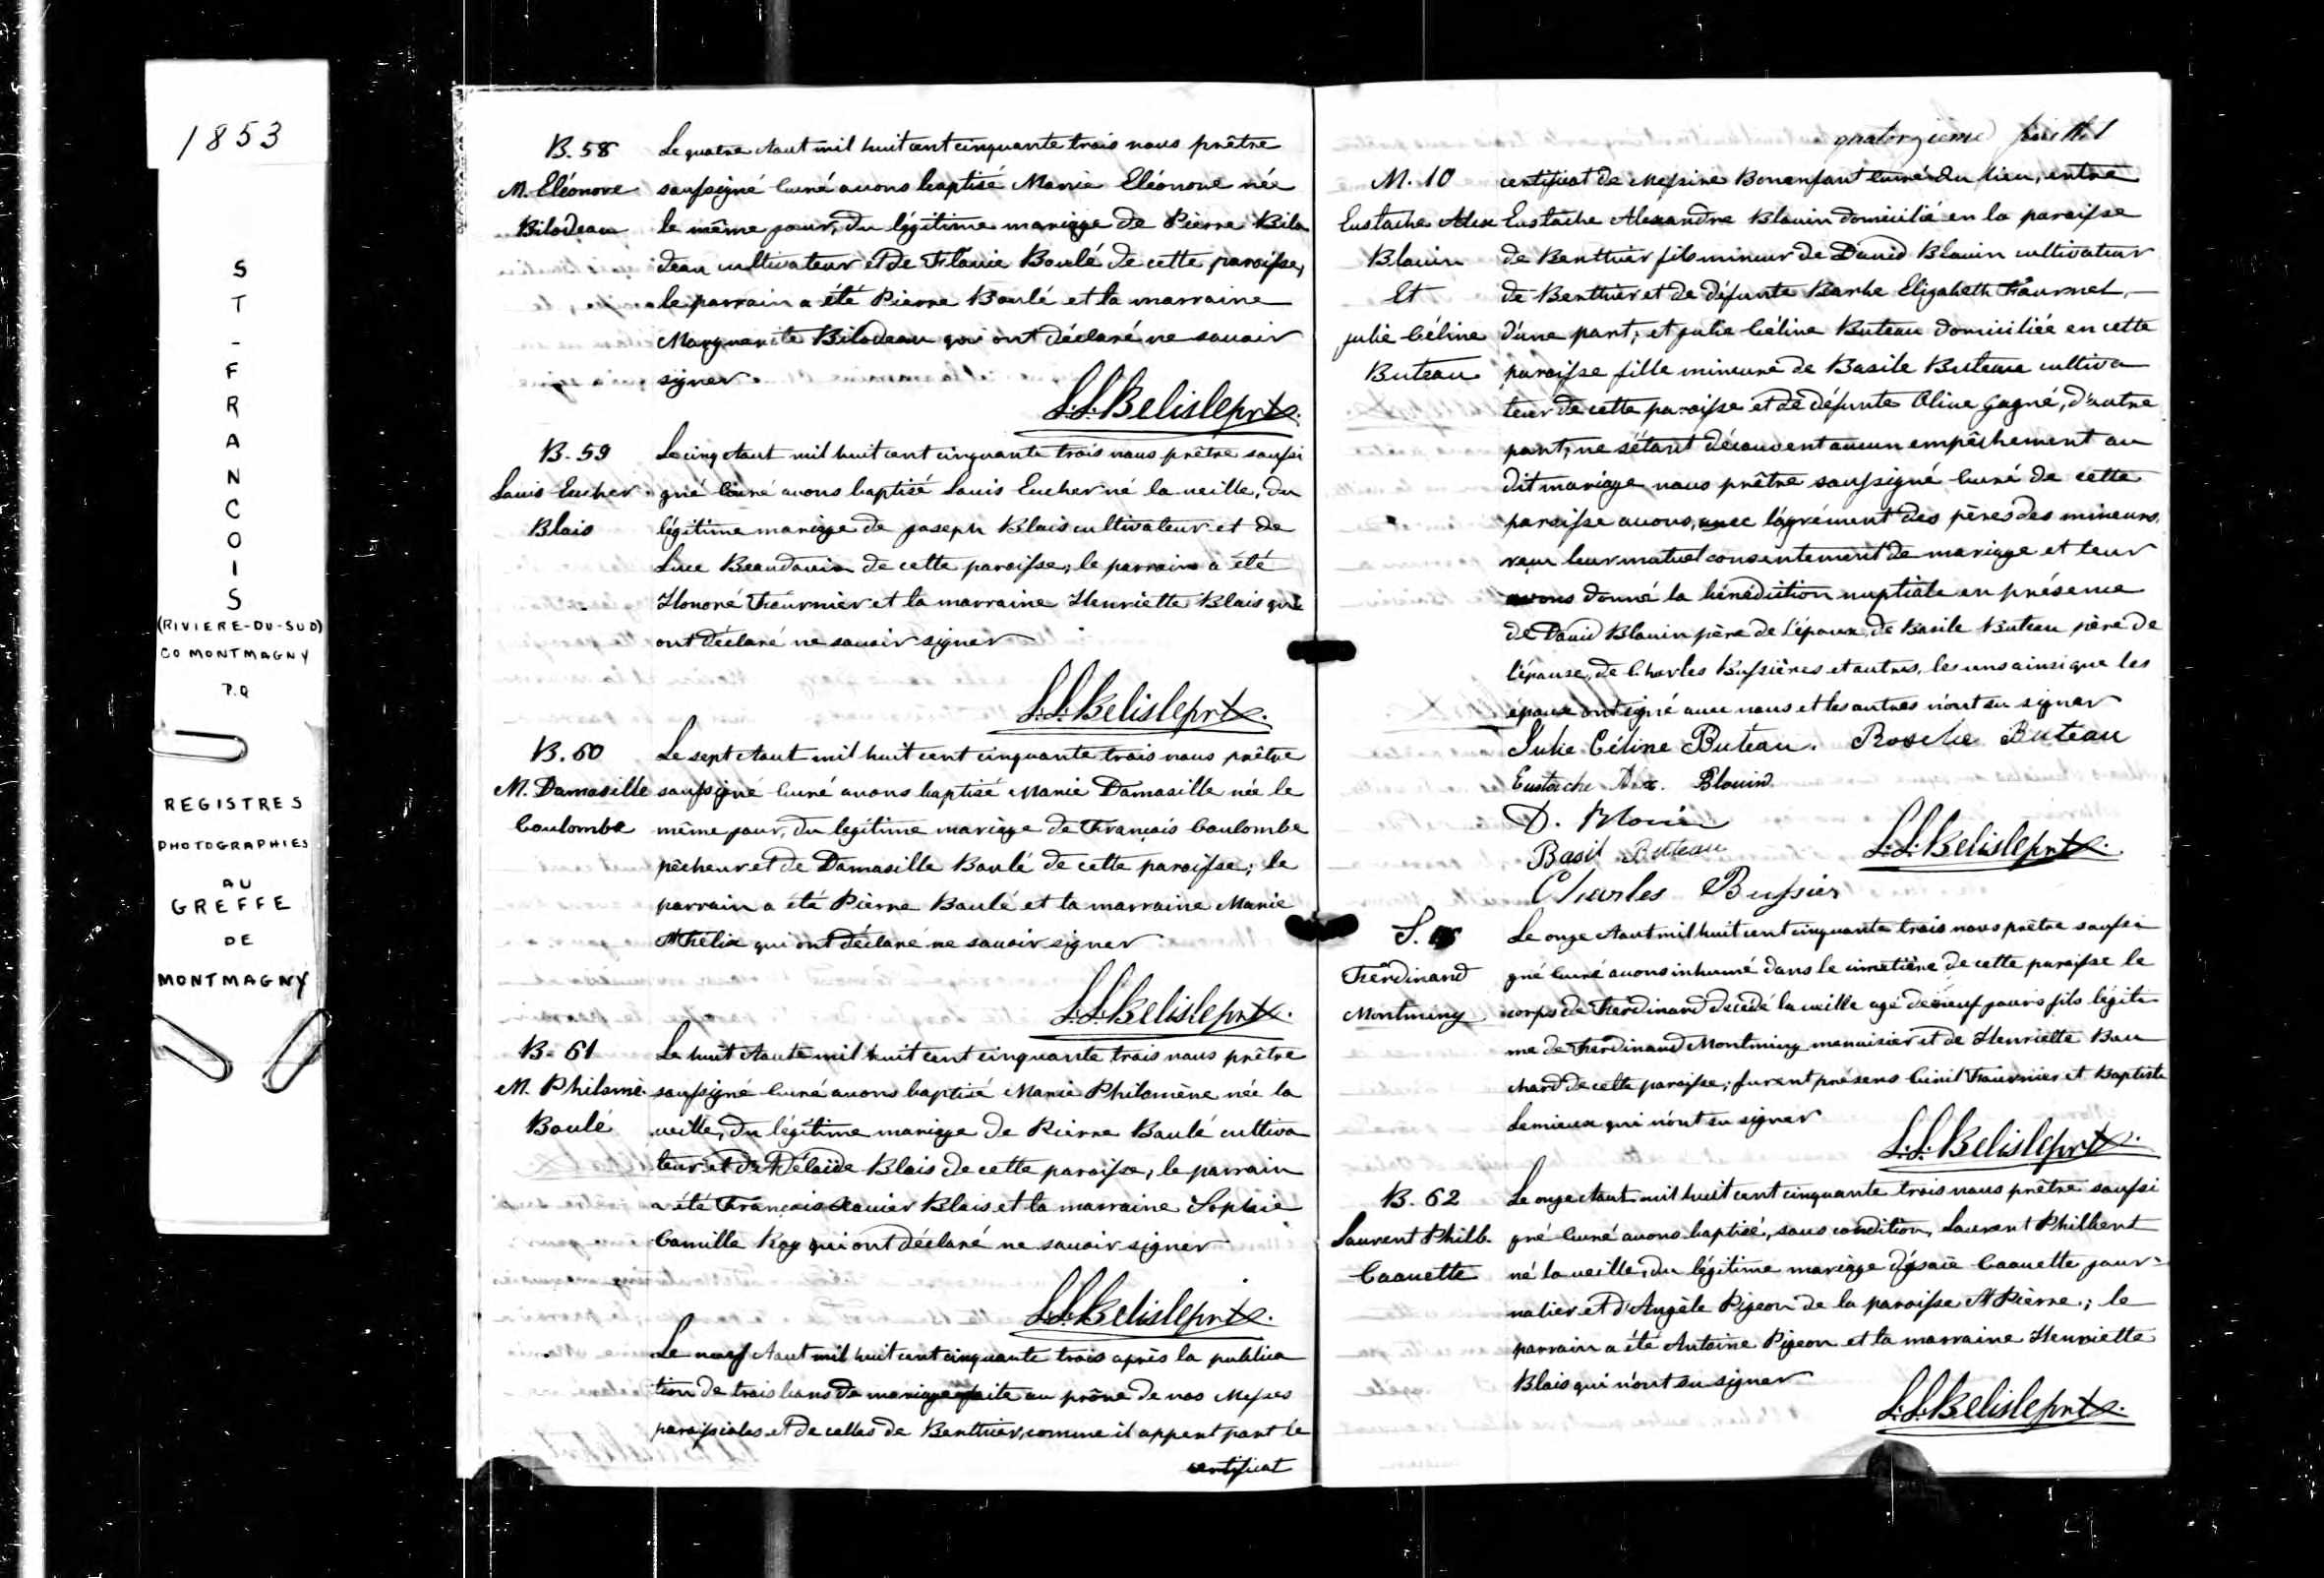 1853
ST-FRANCOIS
(RIVIERE-DU-SUD)
CO MONTMAGNY
P.Q
REGISTRES
PHOTOGRAPHIES
AU
GREFFE
DE
MONTMAGNY
B. 58
M. Eléonore
Bilodeau
Le quatre Aout mil huit cent cinquante trois nous prêtre
soussigné Curé avons baptisé Marie Eléonore née
le même jour, du légitime mariage de Pierre Bilo
deau cultivateur et de Flavie Boulé de cette paroisse,
le parrain a été Pierre Boulé et la marraine
Marguerite Bilodeau qui ont déclaré ne savoir
signer.
L.L. Belisle ptre.
B. 59
Louis Eucher
Blais
Le cinq Aout mil huit cent cinquante trois nous prêtre soussi
gné Curé avons baptisé Louis Eucher né la veille, du
légitime mariage de Joseph Blais cultivateur et de
Luce Beaudouin de cette paroisse; le parrain a été
Honoré Fournier et la marraine Henriette Blais qui
ont déclaré ne savoir signer
L.L. Belisle ptre.
B. 60
M. Damasille
Coulombe
Le sept Aout mil huit cent cinquante trois nous prêtre
soussigné Curé avons baptisé Marie Damasille née le
même jour, du legitime mariage de François Coulombe
pêcheur et de Damasille Boulé de cette paroisse; le
parrain a été Pierre Boulé et la marraine Marie
Thelix qui ont déclaré ne savoir signer
L.L. Belisle ptre.
B. 61
M. Philomè.
Boulé
Le huit Aoute mil huit cent cinquante trois nous prêtre
soussigné Curé avons baptisé Marie Philomène née la
veille, du légitime mariage de Pierre Boulé cultiva
teur et d'Adélaïde Blais de cette paroisse, le parrain
a été François Xavier Blais et la marraine Sophie
Camille Roy qui ont déclaré ne savoir signer
L.L. Belisle ptre.
Le neuf Aout mil huit cent cinquante trois après la publica
tion de trois bans de mariage faite au prône de nos Messes
paroissiales et de celles de Berthier, comme il appert part le
certificat
quatorzieme feuillet
M. 10
Eustache Alex
Blouin
Et
Julie Céline
Buteau
certificat de Messire Bonenfant Curé du lieu, entre
Eustache Alexandre Blouin domicilié en la paroisse
de Berthier fils mineur de David Blouin cultivateur
de Berthier et de défunte Barbe Elizabeth Fournel,
d'une part, et Julie Céline Buteau domiciliée en cette
paroisse fille mineure de Basile Buteau cultiva
teur de cette paroisse et de défunte Olive Gagné, d'autre
part; ne s'étant découvent aucun empêchement au
dit mariage nous prêtre soussigné Curé de cette
paroisse avons, avec l'agrément des pères des mineurs,
reçu leur mutuel consentement de mariage et leur
avons donné la bénédiction nuptiale en présence
de David Blouin père de l'époux, de Basile Buteau père de
l'épouse, de Charles Bussières et autres, les uns ainsi que les
époux ont signé avec nous et les autres n'ont su signer
Julie Céline Buteau. Rosalie Buteau
Eustache Alx. Blouin
D. Blouin
Basil Buteau
L.L. Belisle ptre.
Charles Bussier
S.
Ferdinand
Montminy
Le onze Aout mil huit cent cinquante trois nous prêtre soussi
gné Curé avons inhumé dans le cimetière de cette paroisse le
corps de Ferdinand décédé la veille agé de neuf jours fils légiti
me de Ferdinand Montminy menuisier et de Henriette Bou
chard de cette paroisse; furent présens Ciril Fournier et Baptiste
Lemieux qui n'ont su signer
L.L. Belisle ptre.
B. 62
Laurent Philb.
Caouette
Le onze Aout mil huit cent cinquante trois nous prêtre soussi
gné Curé avons baptisé, sous condition, Laurent Philbert
né la veille, du légitime mariage d'Isaïe Caouette jour-
nalier et d'Angèle Pigeon de la paroisse St Pierre; le
parrain a été Antoine Pigeon et la marraine Henriette
Blais qui n'ont su signer
L.L. Belisle ptre.